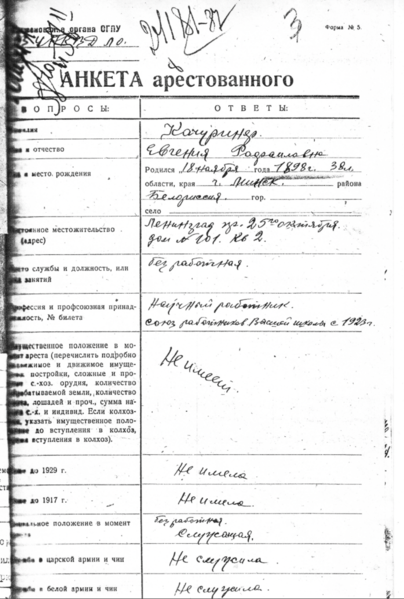 органа ОГПУ
Форма № 5.
АНКЕТА арестованного
ВОПРОСЫ: ОТВЕТЫ:
Качуринер.
и отчество Евгения
и место рождения Родился 18 ноября года 1898 г.
области, края г. Минск. района
Белоруссия. гор.
село
местожительство Ленинград пр. 25го октября
(адрес) дом № 101. кв 2.
службы и должность, или без работная.
занятий
и профсоюзная Научный работник.
№ билета союз работников Высшей школы с 1923 г.
имущественное положение в
ареста (перечислить подробно
и движимое
постройки, сложные и
с.-хоз. орудия, количество
обрабатываемой земли, количество
лошадей и проч., сумма
с.-х. и индивид. Если
указать имущественное
до вступления в колхоз,
вступления в колхоз). Не имеет.
до 1929 г. Не имела
до 1917 г. Не имела
положение в момент без работная.
Служащая.
в царской армии и чин Не служила.
в белой армии и чин Не служила.